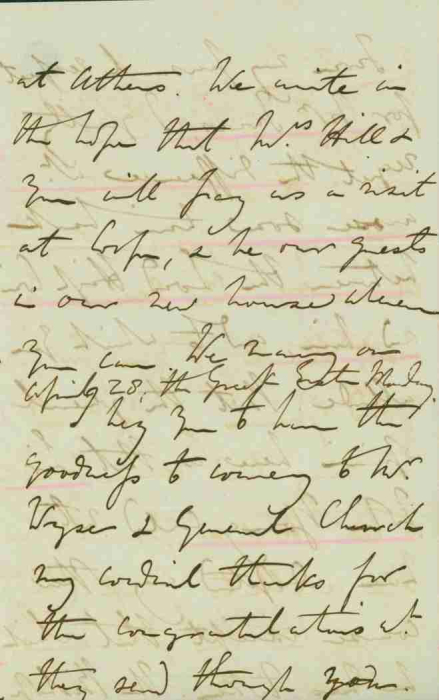 at Athens. We unite in
the hope that Mrs Hill &
you will pay us a visit
at Corfu, & be our guests
in our new house when
you can We marry on
April 28, the Greek Easter Monday.
I beg you to have the
goodness to convey to Mr.
Wyse & General Church
my cordial thanks for
the congratulations wh.
they send through you.